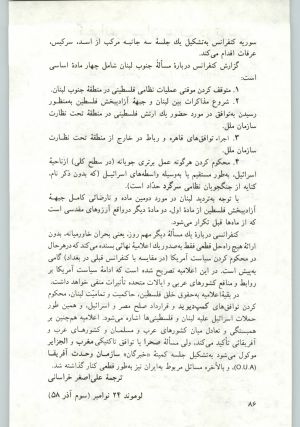 سوریه کنفرانس به‌تشکیل یك جلسهٔ سه جانبه مرکب از اسد، سرکیس،
عرفات اقدام می‌کند.
گزارش کنفرانس دربارهٔ مسألهٔ جنوب لبنان شامل چهار مادهٔ اساسی
است:
۱. متوقف کردن عملیات نظامی فلسطینی در منطقهٔ جنوب لبنان.
۲. شروع مذاکرات بین لبنان و جبههٔ آزادیبخش فلسطین به‌منظور
رسیدن به‌توافق در مورد حضور یك ارتش فلسطینی در منطقهٔ تحت نظارت
سازمان ملل.
۳. اجراء توافق‌های قاهره و رباط در خارج از منطقهٔ تحت نظارت
سازمان ملل.
۴. محکوم کردن هرگونه عمل برتری جویانه (در سطح کلی) ازناحیهٔ
اسرائیل، به‌طور مستقیم یا به‌وسیله واسطه‌های اسرائیل (که بدون ذکر نام،
کنایه از جنگجویان نظامی سرگرد حداد است).
با توجه به‌تردید لبنان در مورد دومین ماده و نارضائی کامل جبههٔ
آزادیبخش فلسطین از مادهٔ اول، دو مادهٔ دیگر درواقع آرزوهای مقدسی است
که از ماه‌ها قبل تکرار می‌شود.
کنفرانس دربارهٔ یك مسألهٔ دیگر مهم روز، یعنی بحران خاورمیانه، بدون
ارائهٔ هیچ راه‌حل قطعی فقط به‌صدور یك اعلامیهٔ نهائی بسنده می‌کند که درهرحال
در محکوم کردن سیاست آمریکا (در مقایسه با کنفرانس قبلی در بغداد) گامی
به‌پیش است. در این اعلامیه تصریح شده است که ادامهٔ سیاست آمریکا بر
روابط و منافع کشورهای عربی و ایالات متحده تأثیرات منفی خواهد داشت.
در بقیهٔ اعلامیه به‌حقوق خلق فلسطین، حاکمیت و تمامیت لبنان، محکوم
کردن توافق‌های کمپ‌دیوید و قرارداد صلح مصر و اسرائیل، و همین طور
حملات اسرائیل علیه لبنان و فلسطینی‌ها اشاره می‌شود. اعلامیه هم‌چنین بر
همبستگی و تعادل میان کشورهای عرب و مسلمان و کشورهای عرب و
آفریقائی تأکید می‌کند، ولی مسألهٔ صحرا با توافق تاکتیکی مغرب و الجزایر
موکول می‌شود به‌تشکیل جلسه کمیتهٔ «خبرگان» سازمان وحدت آفریقا
(O.U.A)، و بالأخره مسائل مربوط به‌ایران نیز به‌طور قطعی کنار گذاشته شد.
ترجمهٔ علی‌اصغر خراسانی
لوموند ۲۴ نوامبر (سوم آذر ۵۸)
۸۶